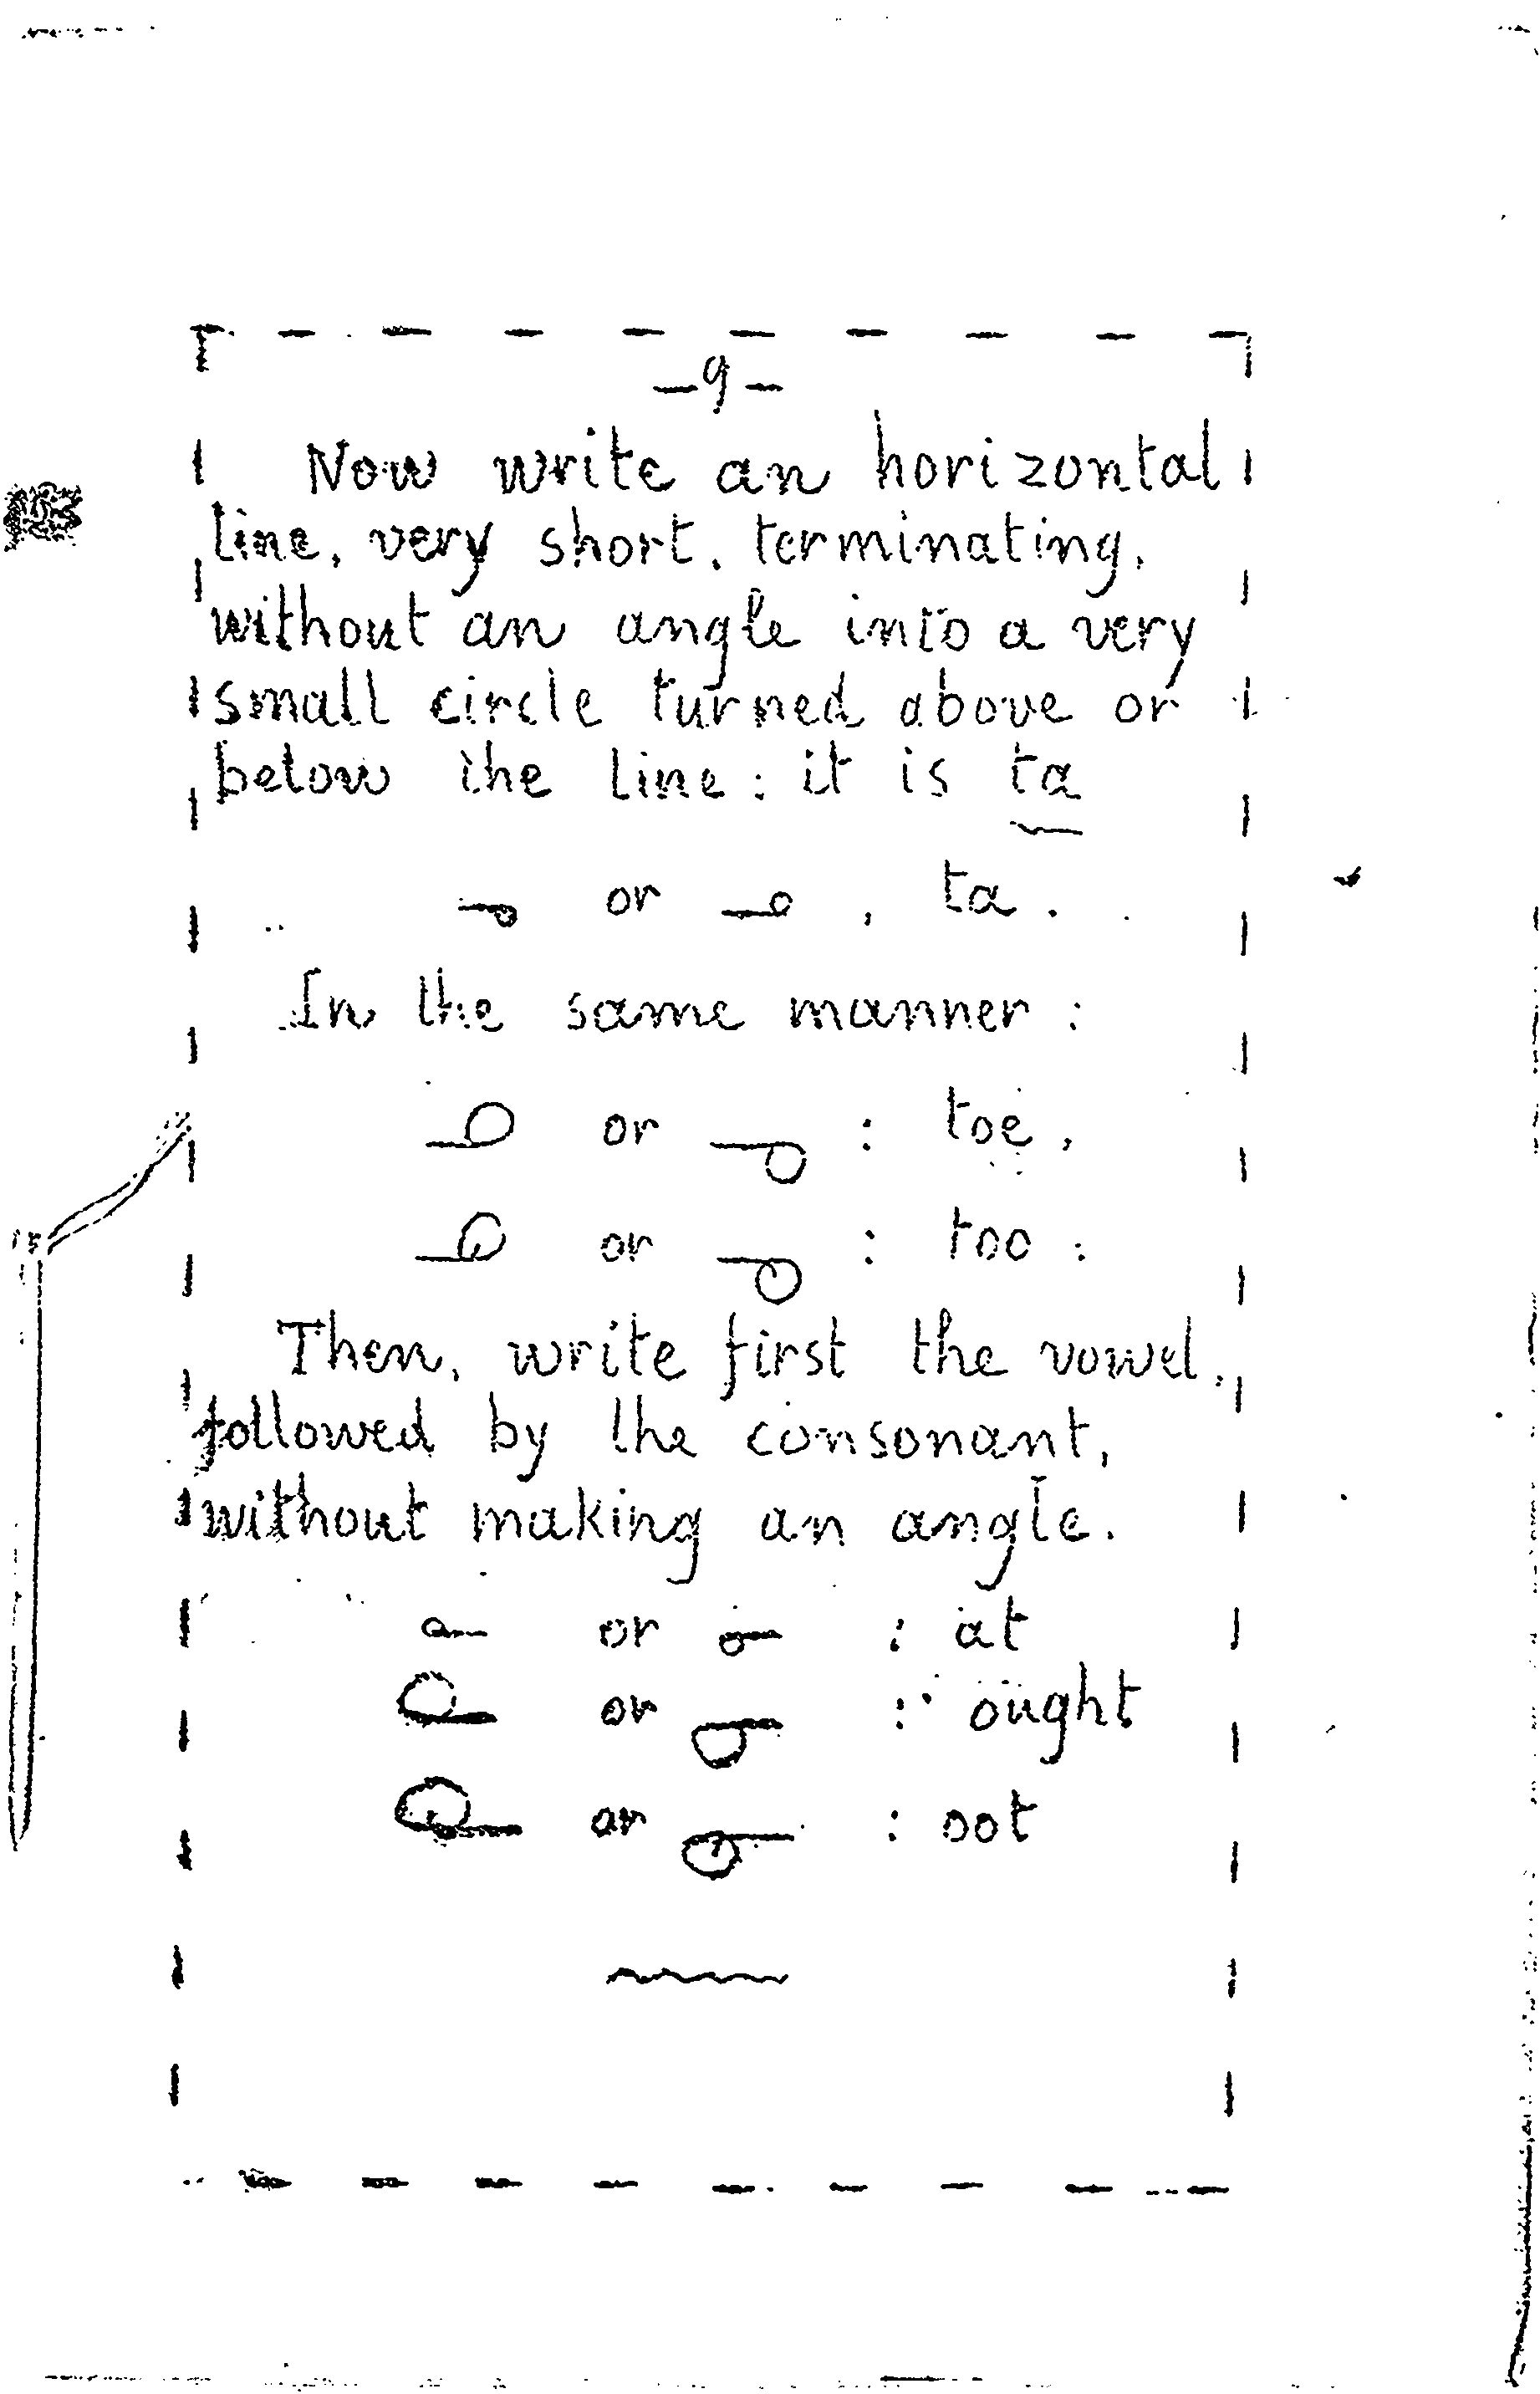 -9-
Now write an horizontal
line, very short, terminating,
without an angle into a very
small circle turned above or
below the line: it is ta
or , ta.
In the same manner:
or : toe,
or : too.
Then, write first the vowel,
followed by the consonant,
without making an angle.
or : at
or : ought
or : oot